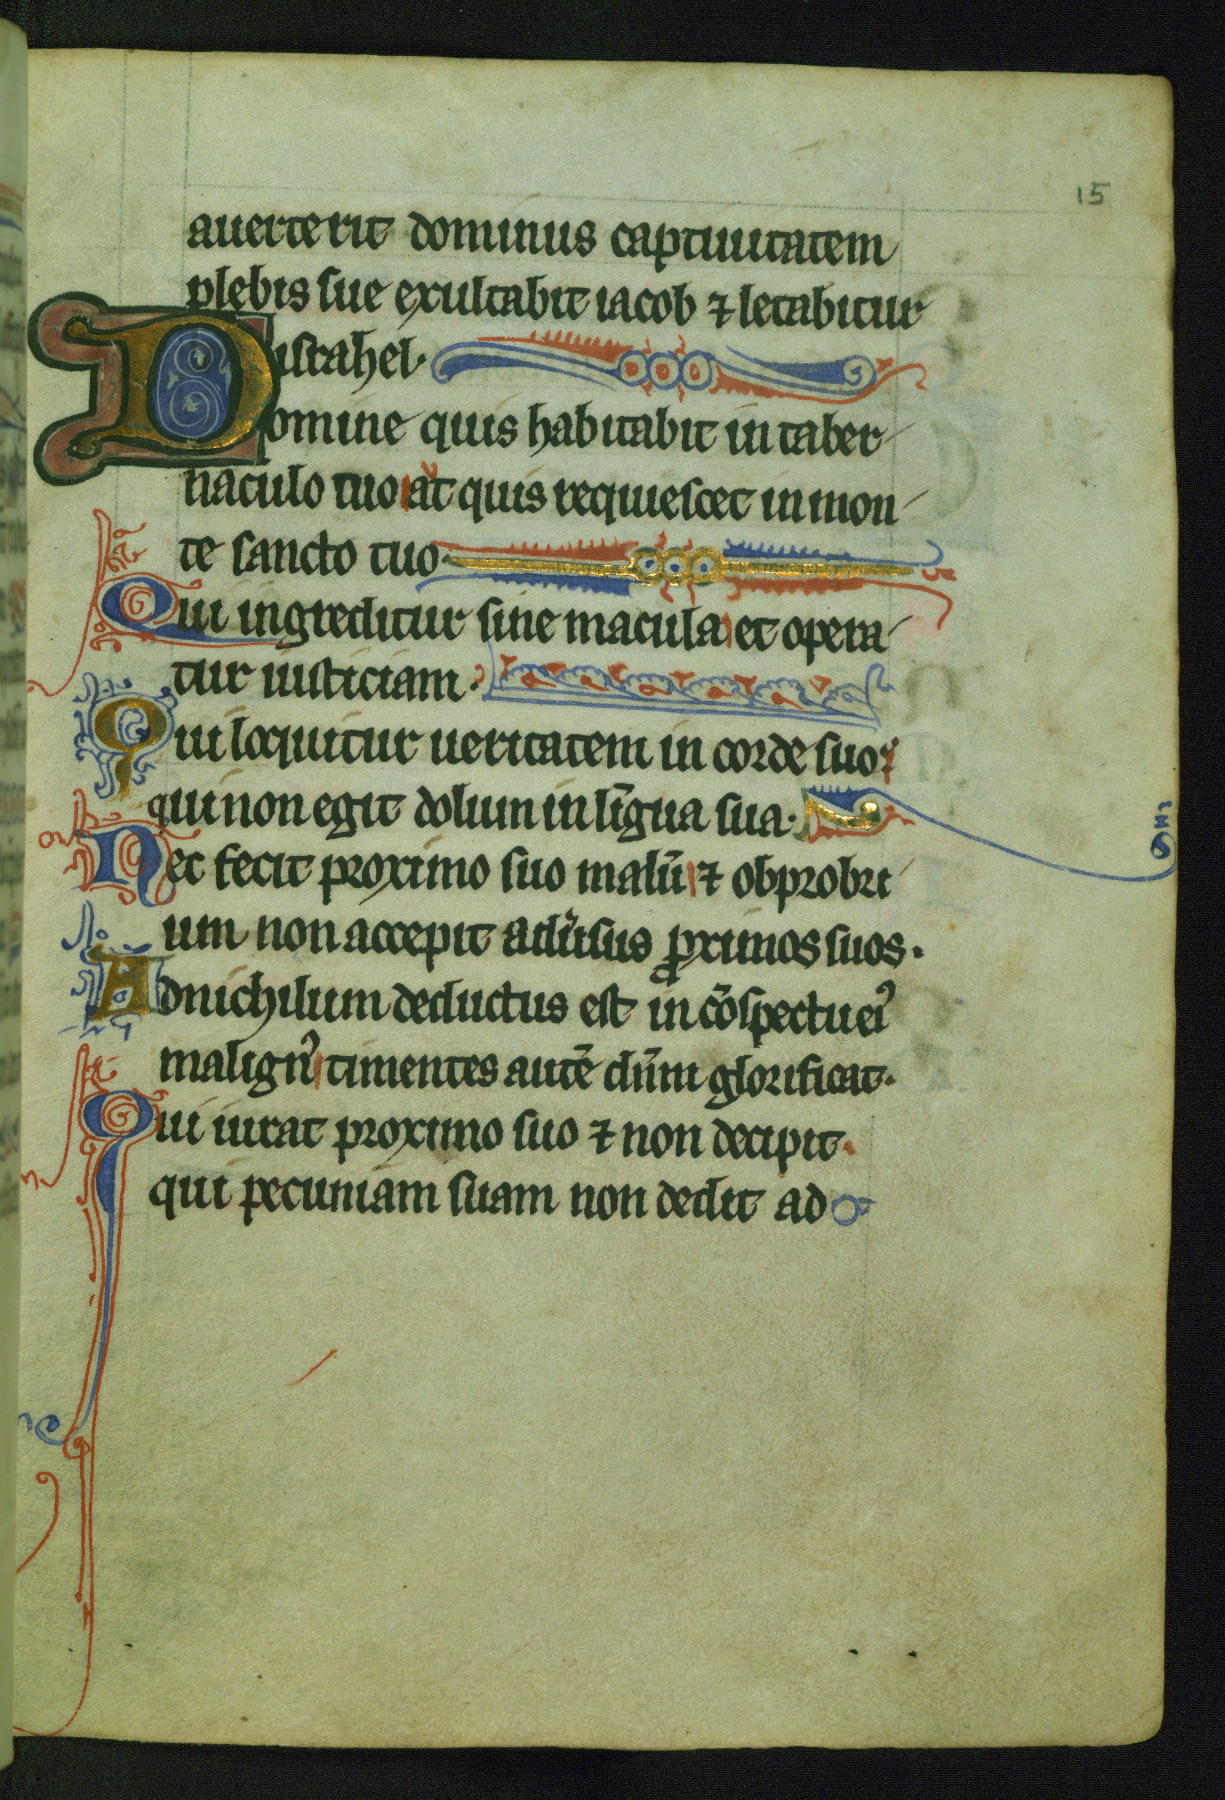 15
auerterit dominus captiuitatem
plebis sue exultabit iacob ⁊ letabitur
israhel·
Domine quis habitabit in taber
naculo tuo at quis requiescet in mon
te sancto tuo·
Qui ingreditur sine macula et opera
tur iusticiam·
Qui loquitur ueritatem in corde suo
qui non egit dolum in līgua sua·
Nec fecit proximo suo malū ⁊ obprobri
um non accepit adũsus ꝓximos suos·
Adnichilum deductus est in cōspectu eiꝰ
malignꝰ timentes autē dñm glorificat·
Qui iurat proximo suo ⁊ non decipit
qui pecuniam suam non dedit ad